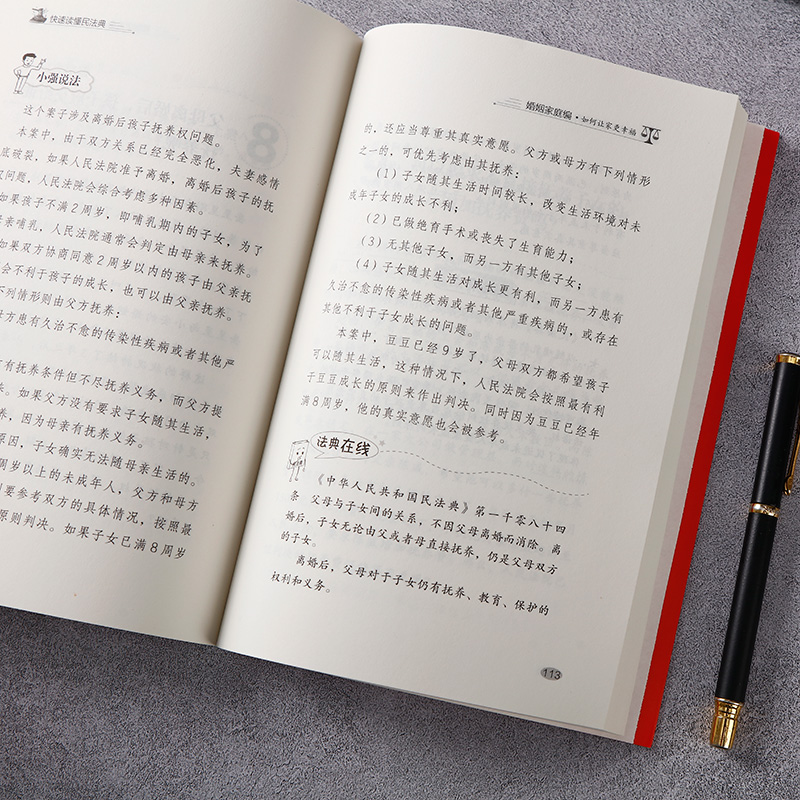 快速读懂民法典
小强说法
这个案子涉及离婚后孩子抚养权问题。
本案中，由于双方关系已经完全恶化，夫妻感情
底破裂，如果人民法院准予离婚，离婚后孩子的抚
权问题，人民法院会综合考虑多种因素。
如果孩子不满2周岁，即哺乳期内的子女，为了
母亲哺乳，人民法院通常会判定由母亲来抚养。
如果双方协商同意2周岁以内的孩子由父亲抚
会不利于孩子的成长，也可以由父亲抚养。
下列情形则由父方抚养：
母方患有久治不愈的传染性疾病或者其他严
有抚养条件但不尽抚养义务，而父方提
养。如果父方没有要求子女随其生活，
养，因为母亲有抚养义务。
原因，子女确实无法随母亲生活的。
周岁以上的未成年人，父方和母方
则要参考双方的具体情况，按照最
原则判决。如果子女已满8周岁
婚姻家庭编·如何让家更幸福
的，还应当尊重其真实意愿。父方或母方有下列情形
之一的，可优先考虑由其抚养：
（1）子女随其生活时间较长，改变生活环境对未
成年子女的成长不利；
（2）已做绝育手术或丧失了生育能力；
（3）无其他子女，而另一方有其他子女；
（4）子女随其生活对成长更有利，而另一方患有
久治不愈的传染性疾病或者其他严重疾病的，或存在
其他不利于子女成长的问题。
本案中，豆豆已经9岁了，父母双方都希望孩子
可以随其生活，这种情况下，人民法院会按照最有利
于豆豆成长的原则来作出判决。同时因为豆豆已经年
满8周岁，他的真实意愿也会被参考。
法典在线
《中华人民共和国民法典》第一千零八十四
条　父母与子女间的关系，不因父母离婚而消除。离
婚后，子女无论由父或者母直接抚养，仍是父母双方
的子女。
离婚后，父母对于子女仍有抚养、教育、保护的
权利和义务。
113